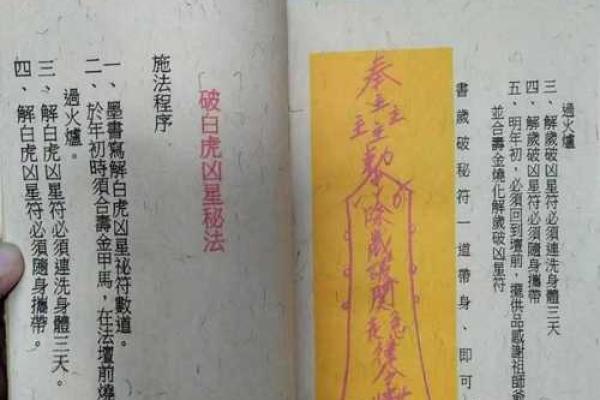 過火爐
三、解歲破凶星符必須連洗身體三天
四、解歲破凶星符必須隨身攜帶
五、明年初，必須回到壇前，擺供品感謝祖師爺
並合壽金燒化解歲破凶星符
書歲破秘符一道帶身、即可
奉
主
主
主
主
除歲破關
破白虎凶星秘法
施法程序
一、墨書寫解白虎凶星祕符數道。
二、於年初時須合壽金甲馬，在法壇前燒
過火爐。
三、解白虎凶星符必須連洗身體三天。
四、解白虎凶星符必須隨身攜帶。